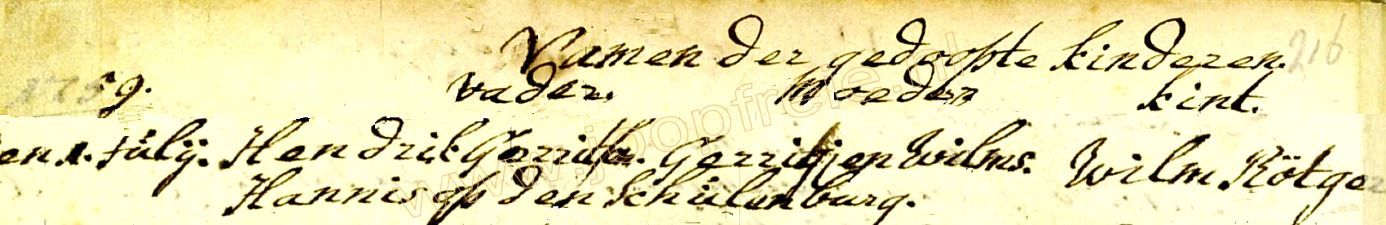 Namen der gedoopte kinderen. 216
1759. vader. Moeder kint.
en 1. Julij. Hendrik Gerrith. Gerritjen Wilms. Wilm Rötger
Hannis op den Schulenburg.